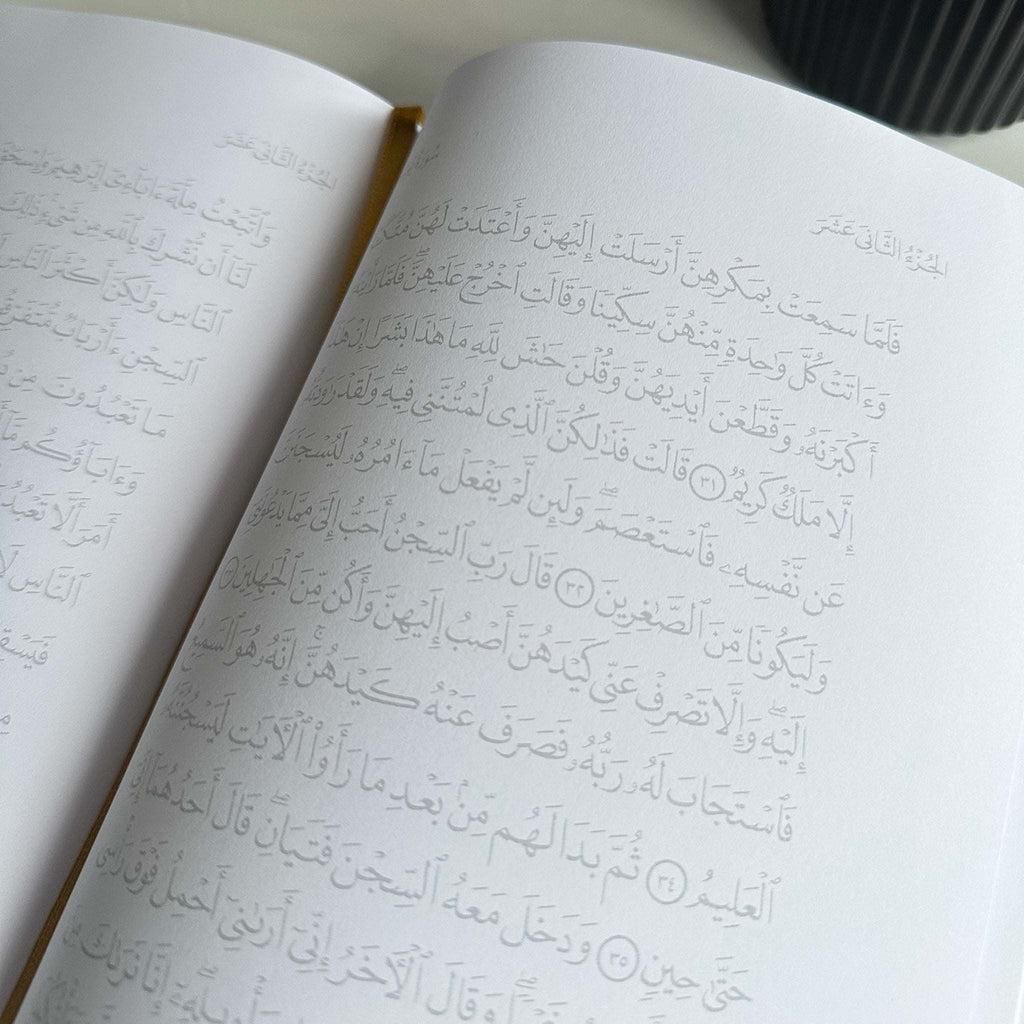 سُورَةُ
الجُزْءُ الثَّانِي عَشَرَ
فَلَمَّا سَمِعَتْ بِمَكْرِهِنَّ أَرْسَلَتْ إِلَيْهِنَّ وَأَعْتَدَتْ لَهُنَّ
وَءَاتَتْ كُلَّ وَٰحِدَةٍ مِّنْهُنَّ سِكِّينًا وَقَالَتِ ٱخْرُجْ عَلَيْهِنَّۖ فَلَمَّا
أَكْبَرْنَهُۥ وَقَطَّعْنَ أَيْدِيَهُنَّ وَقُلْنَ حَٰشَ لِلَّهِ مَا هَٰذَا بَشَرًا إِنْ
إِلَّا مَلَكٌ كَرِيمٌ ٣١ قَالَتْ فَذَٰلِكُنَّ ٱلَّذِى لُمْتُنَّنِى فِيهِۖ وَلَقَدْ
عَن نَّفْسِهِۦ فَٱسْتَعْصَمَۖ وَلَئِن لَّمْ يَفْعَلْ مَآ ءَامُرُهُۥ لَيُسْجَنَنَّ
وَلَيَكُونًا مِّنَ ٱلصَّٰغِرِينَ ٣٢ قَالَ رَبِّ ٱلسِّجْنُ أَحَبُّ إِلَىَّ مِمَّا يَدْعُونَنِىٓ
إِلَيْهِۖ وَإِلَّا تَصْرِفْ عَنِّى كَيْدَهُنَّ أَصْبُ إِلَيْهِنَّ وَأَكُن مِّنَ ٱلْجَٰهِلِينَ
فَٱسْتَجَابَ لَهُۥ رَبُّهُۥ فَصَرَفَ عَنْهُ كَيْدَهُنَّۚ إِنَّهُۥ هُوَ ٱلسَّمِيعُ
ٱلْعَلِيمُ ٣٤ ثُمَّ بَدَا لَهُم مِّنۢ بَعْدِ مَا رَأَوُا۟ ٱلْءَايَٰتِ لَيَسْجُنُنَّهُۥ
حَتَّىٰ حِينٍ ٣٥ وَدَخَلَ مَعَهُ ٱلسِّجْنَ فَتَيَانِۖ قَالَ أَحَدُهُمَآ إِنِّىٓ
وَقَالَ ٱلْءَاخَرُ إِنِّىٓ أَرَىٰنِىٓ أَحْمِلُ فَوْقَ رَأْسِى
بِتَأْوِيلِهِۦٓۖ إِنَّا نَرَىٰكَ
الجُزْءُ الثَّانِي عَشَرَ
وَٱتَّبَعْتُ مِلَّةَ ءَابَآءِىٓ إِبْرَٰهِيمَ وَإِسْحَٰقَ
لَنَآ أَن نُّشْرِكَ بِٱللَّهِ مِن شَىْءٍۚ ذَٰلِكَ
ٱلنَّاسِ وَلَٰكِنَّ أَكْثَرَ ٱلنَّاسِ
ٱلسِّجْنِ ءَأَرْبَابٌ مُّتَفَرِّقُونَ
مَا تَعْبُدُونَ مِن
وَءَابَآؤُكُم مَّآ
أَمَرَ أَلَّا تَعْبُدُوٓا۟
ٱلنَّاسِ لَا
فَيَسْقِى